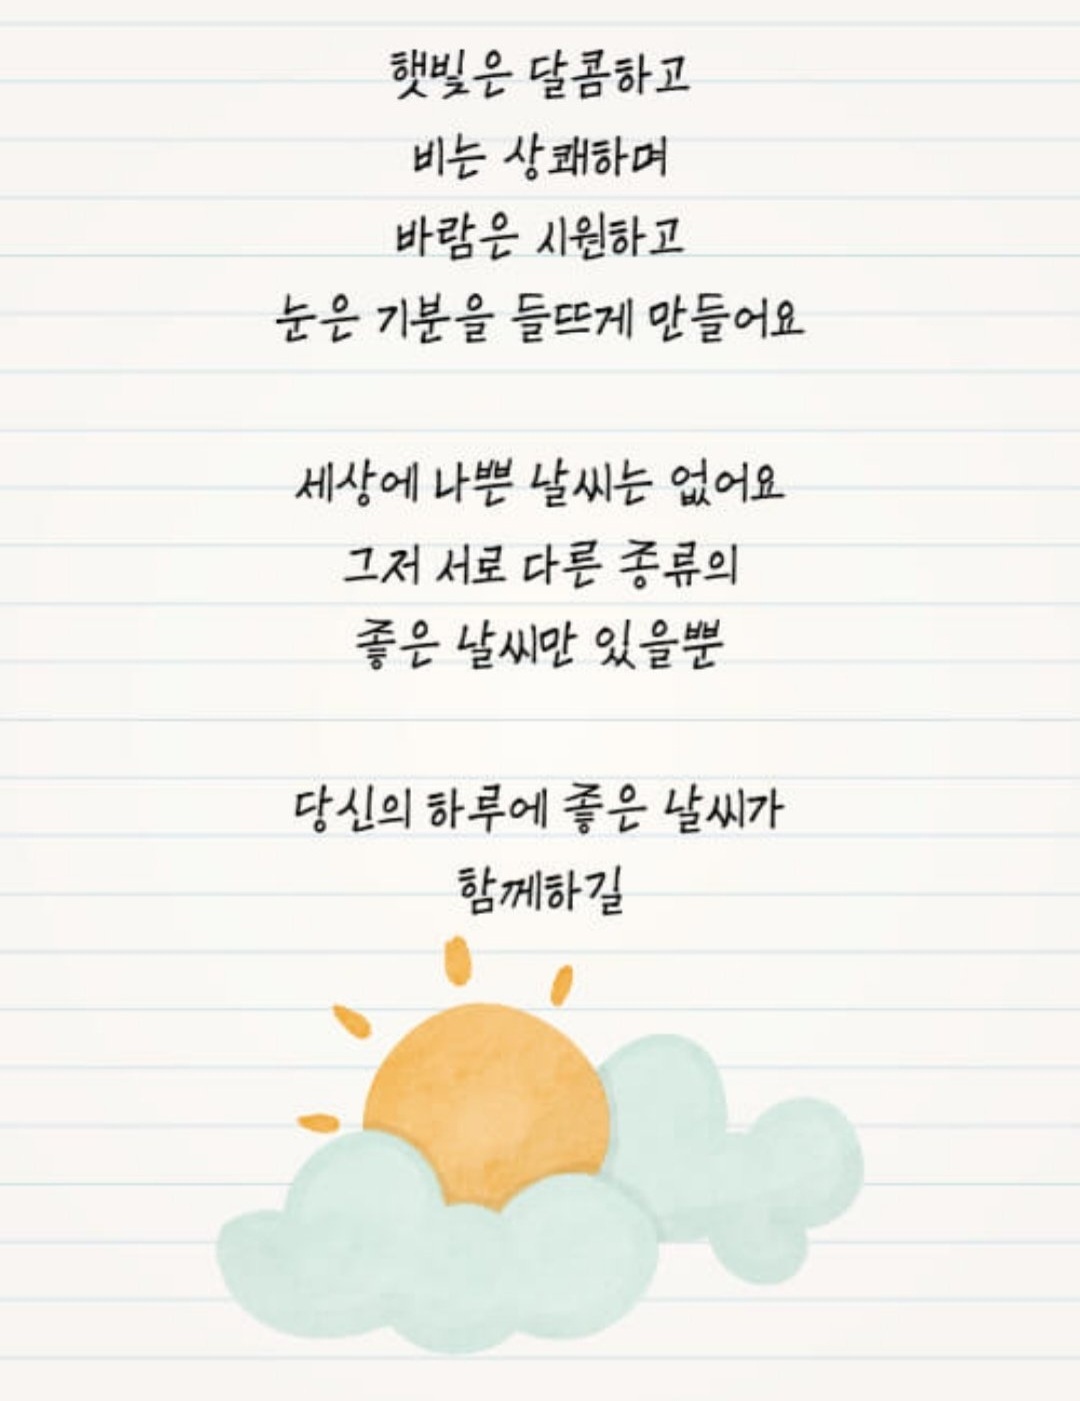 햇빛은 달콤하고
비는 상쾌하며
바람은 시원하고
눈은 기분을 들뜨게 만들어요
세상에 나쁜 날씨는 없어요
그저 서로 다른 종류의
좋은 날씨만 있을뿐
당신의 하루에 좋은 날씨가
함께하길